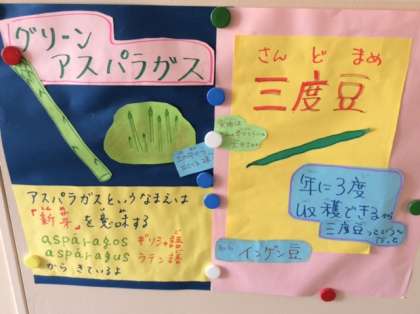 グリーン
アスパラガス
アスパラガスというなまえは
「新芽」を意味する
aspáragos ギリシャ語
asparagus ラテン語
からきているよ
さんどまめ
三度豆
年に3度
収穫できるから
三度豆っていうんだって
インゲン豆